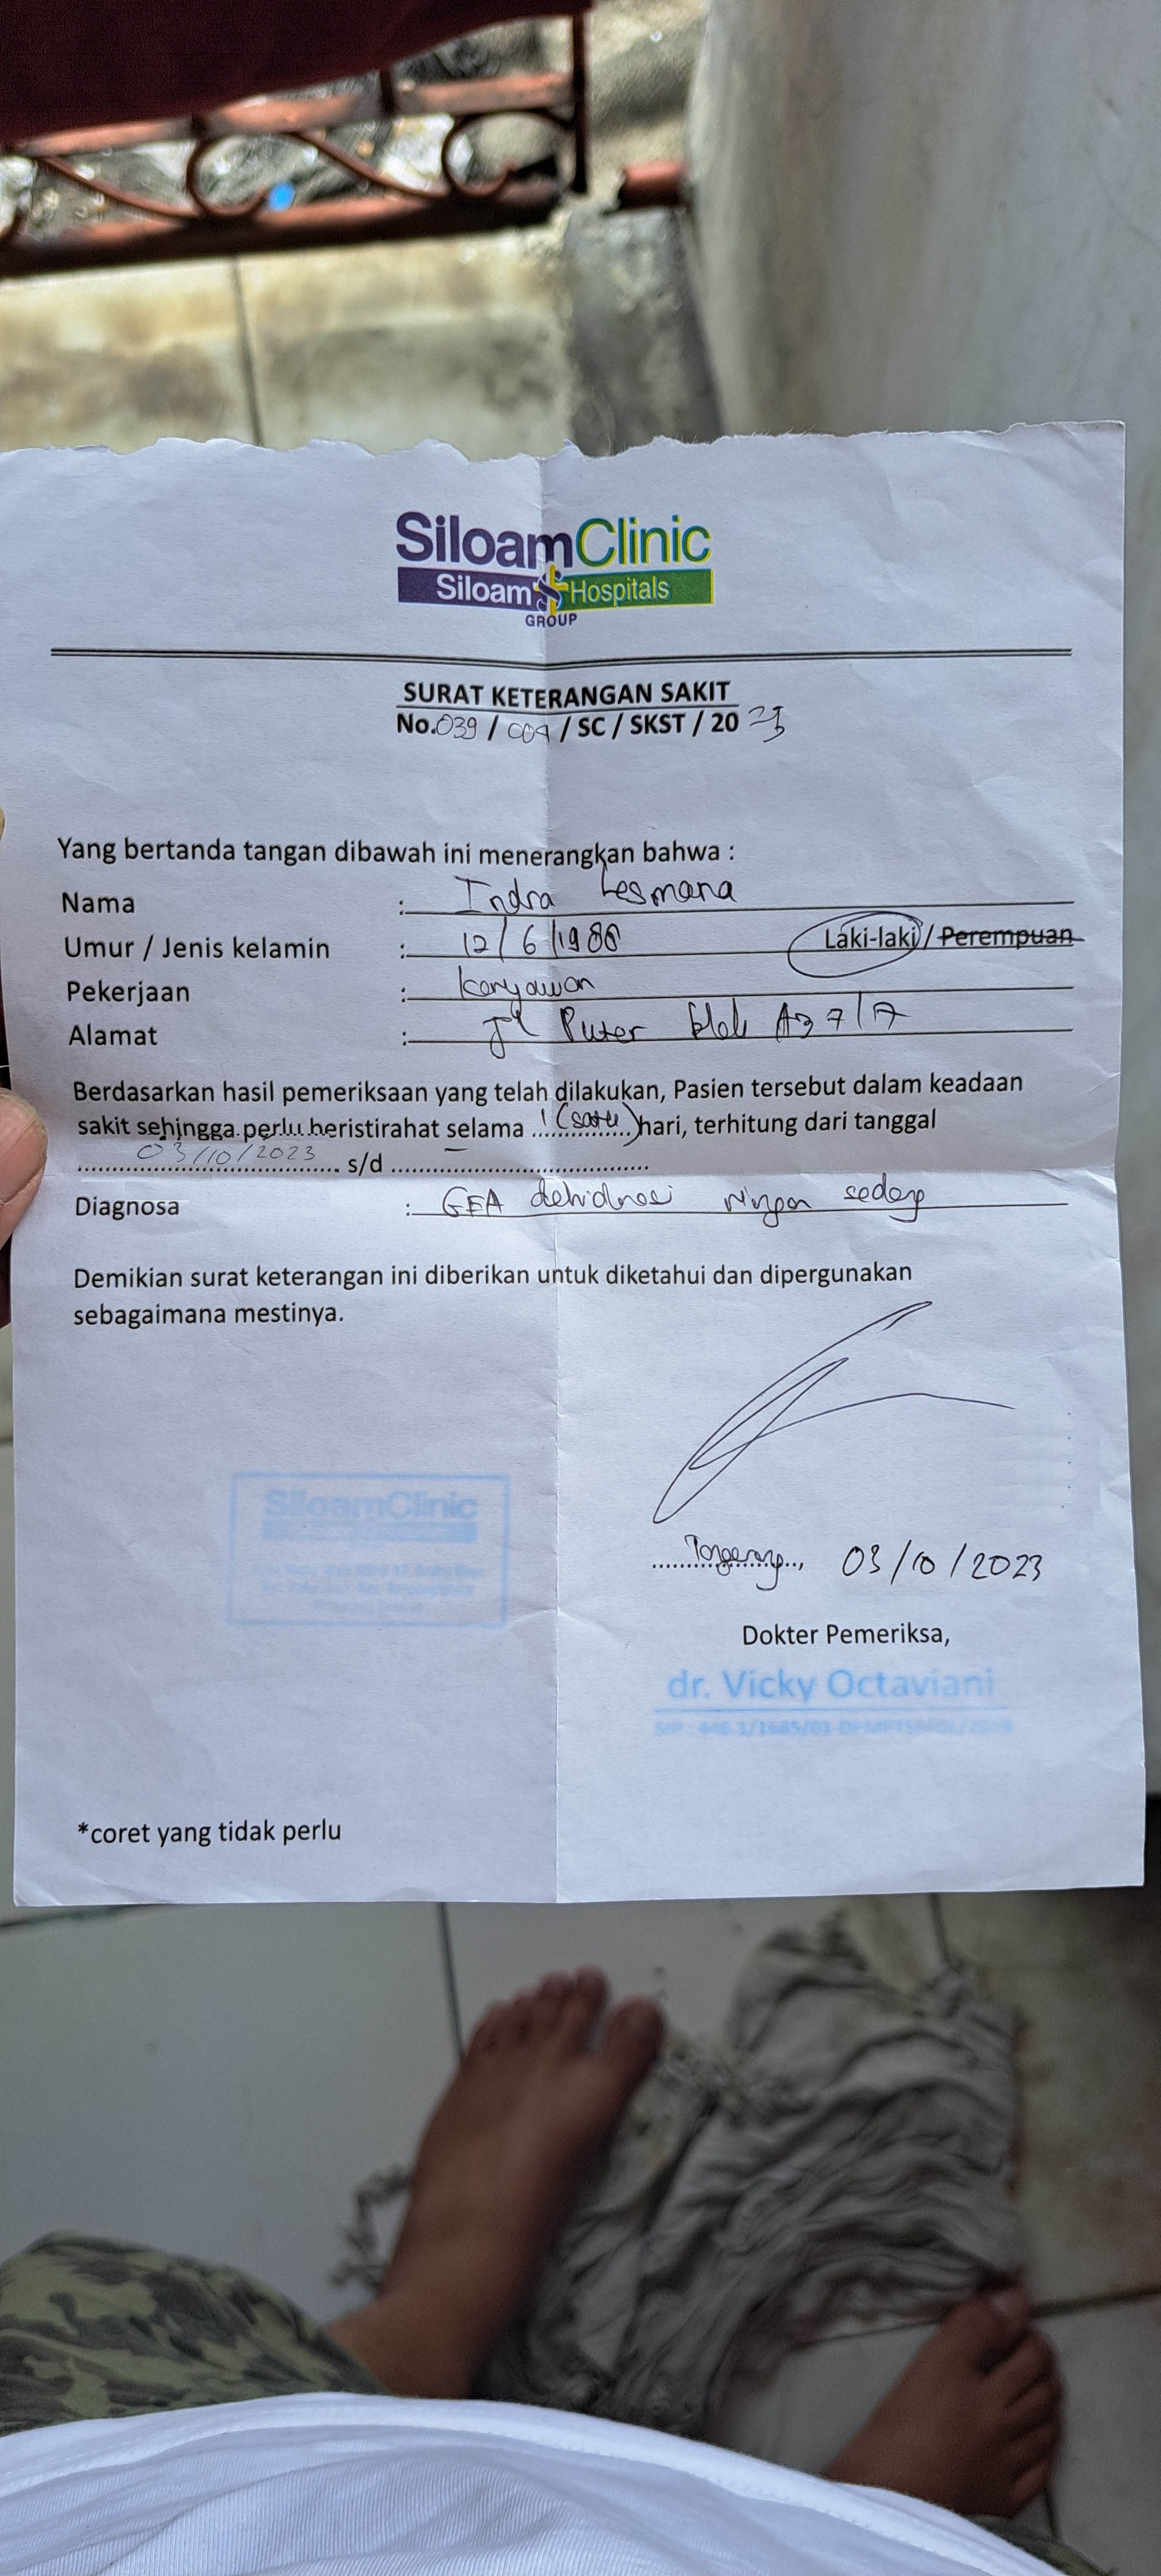 SiloamClinic
Siloam Hospitals
GROUP
SURAT KETERANGAN SAKIT
No.039 / 009 / SC / SKST / 20 23
Yang bertanda tangan dibawah ini menerangkan bahwa :
Nama : Indra Lesmana
Umur / Jenis kelamin : 12/6/1986 Laki-laki / Perempuan
Pekerjaan : karyawan
Alamat : Jl Puter blok A3 7/7
Berdasarkan hasil pemeriksaan yang telah dilakukan, Pasien tersebut dalam keadaan
sakit sehingga perlu beristirahat selama 1 (satu) hari, terhitung dari tanggal
03/10/2023 s/d
Diagnosa : GEA dehidrasi ringan sedang
Demikian surat keterangan ini diberikan untuk diketahui dan dipergunakan
sebagaimana mestinya.
SiloamClinic
Tangerang, 03/10/2023
Dokter Pemeriksa,
dr. Vicky Octaviani
SIP : 446.1/1685/01
*coret yang tidak perlu